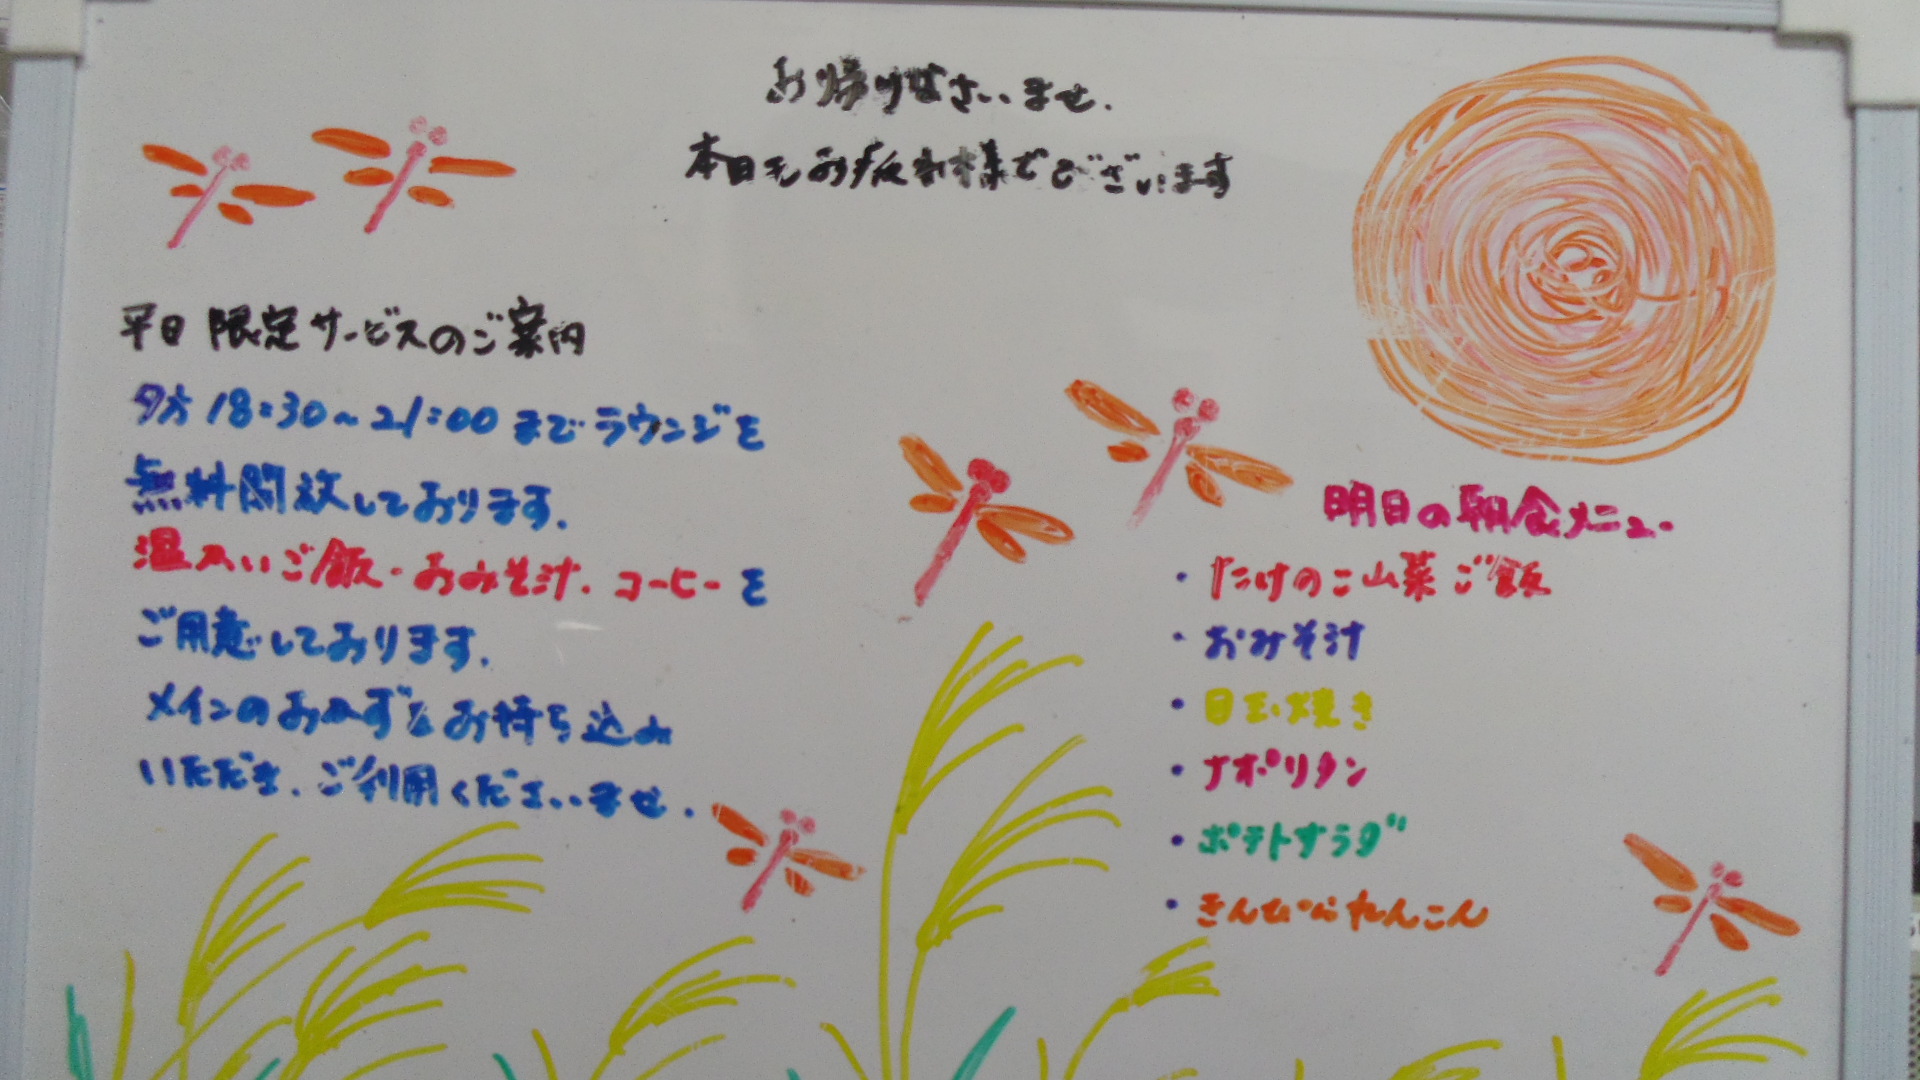 お帰りなさいませ.
本日もお疲れ様でございます
平日限定サービスのご案内
夕方18:30～21:00までラウンジを
無料開放しております.
温かいご飯・おみそ汁.コーヒーを
ご用意しております.
メインのおかずをお持ち込み
いただき.ご利用くださいませ.
明日の朝食メニュー
・たけのこ山菜ご飯
・おみそ汁
・目玉焼き
・ナポリタン
・ポテトサラダ
・きんぴられんこん